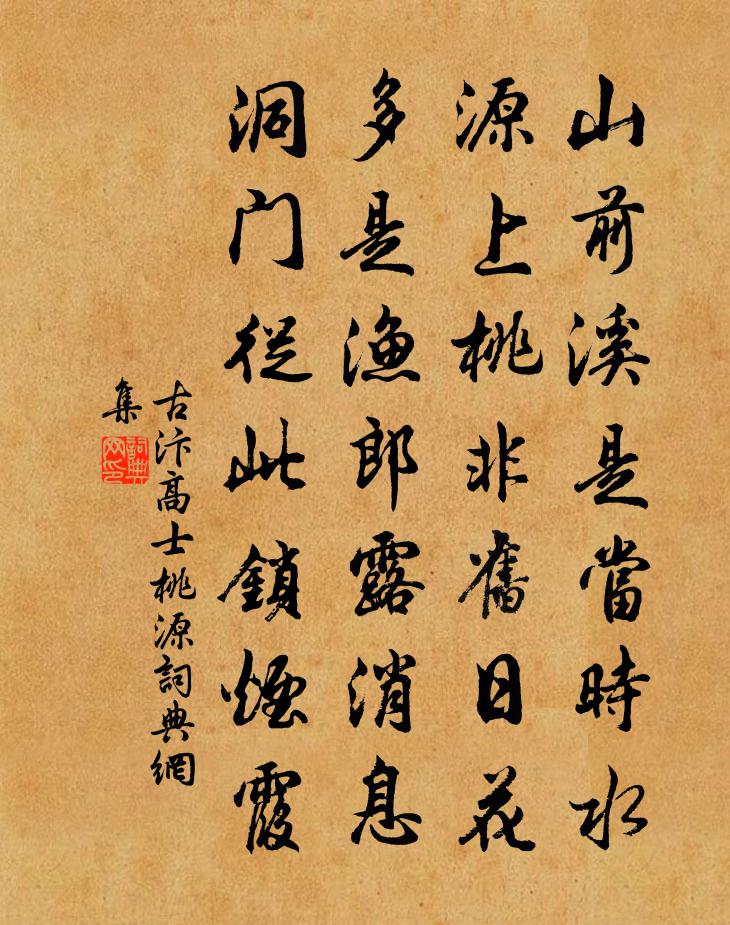 山前溪是當時水
源上桃非舊日花
多是漁郎露消息
洞门從此鎖煙霞
古汴高士桃源詞典網
集
詞典網印